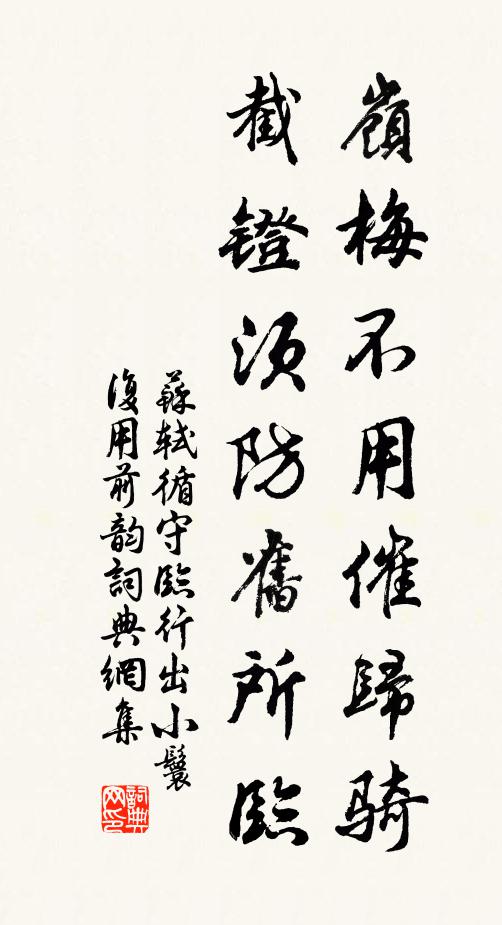 嶺梅不用催歸騎
截鐙須防舊所臨
蘇軾循守臨行出小鬟
復用前韵詞典網集
詞典网印